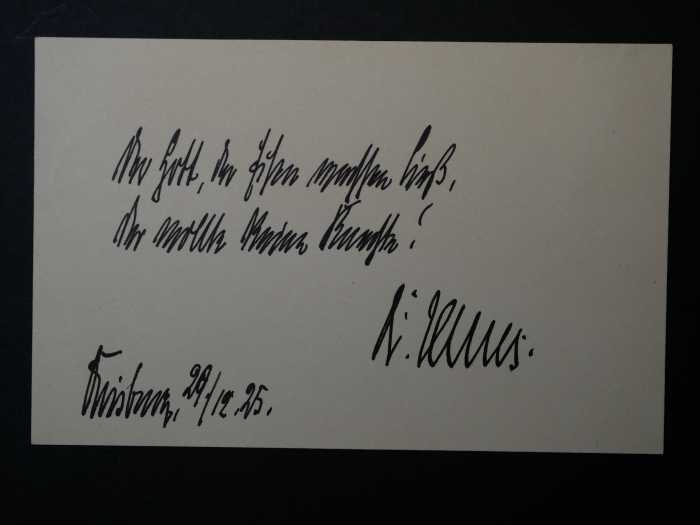 Der Gott, der Eisen wachsen ließ,
der wollte keine Knechte!
Duisburg, 29/12.25.